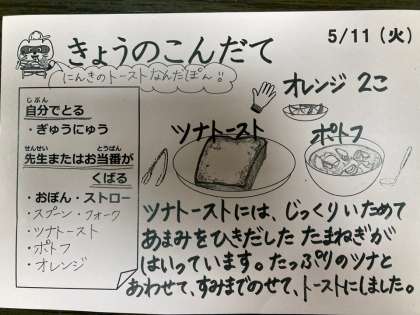 きょうのこんだて
5/11（火）
にんきのトーストなんだぽん!!
オレンジ 2こ
ツナトースト
ポトフ
自分でとる
じぶん
・ぎゅうにゅう
せんせい とうばん
先生またはお当番が
くばる
・おぼん・ストロー
・スプーン・フォーク
・ツナトースト
・ポトフ
・オレンジ
ツナトーストには、じっくりいためて
あまみをひきだした たまねぎが
はいっています。たっぷりのツナと
あわせて、すみまでのせて、トーストにしました。